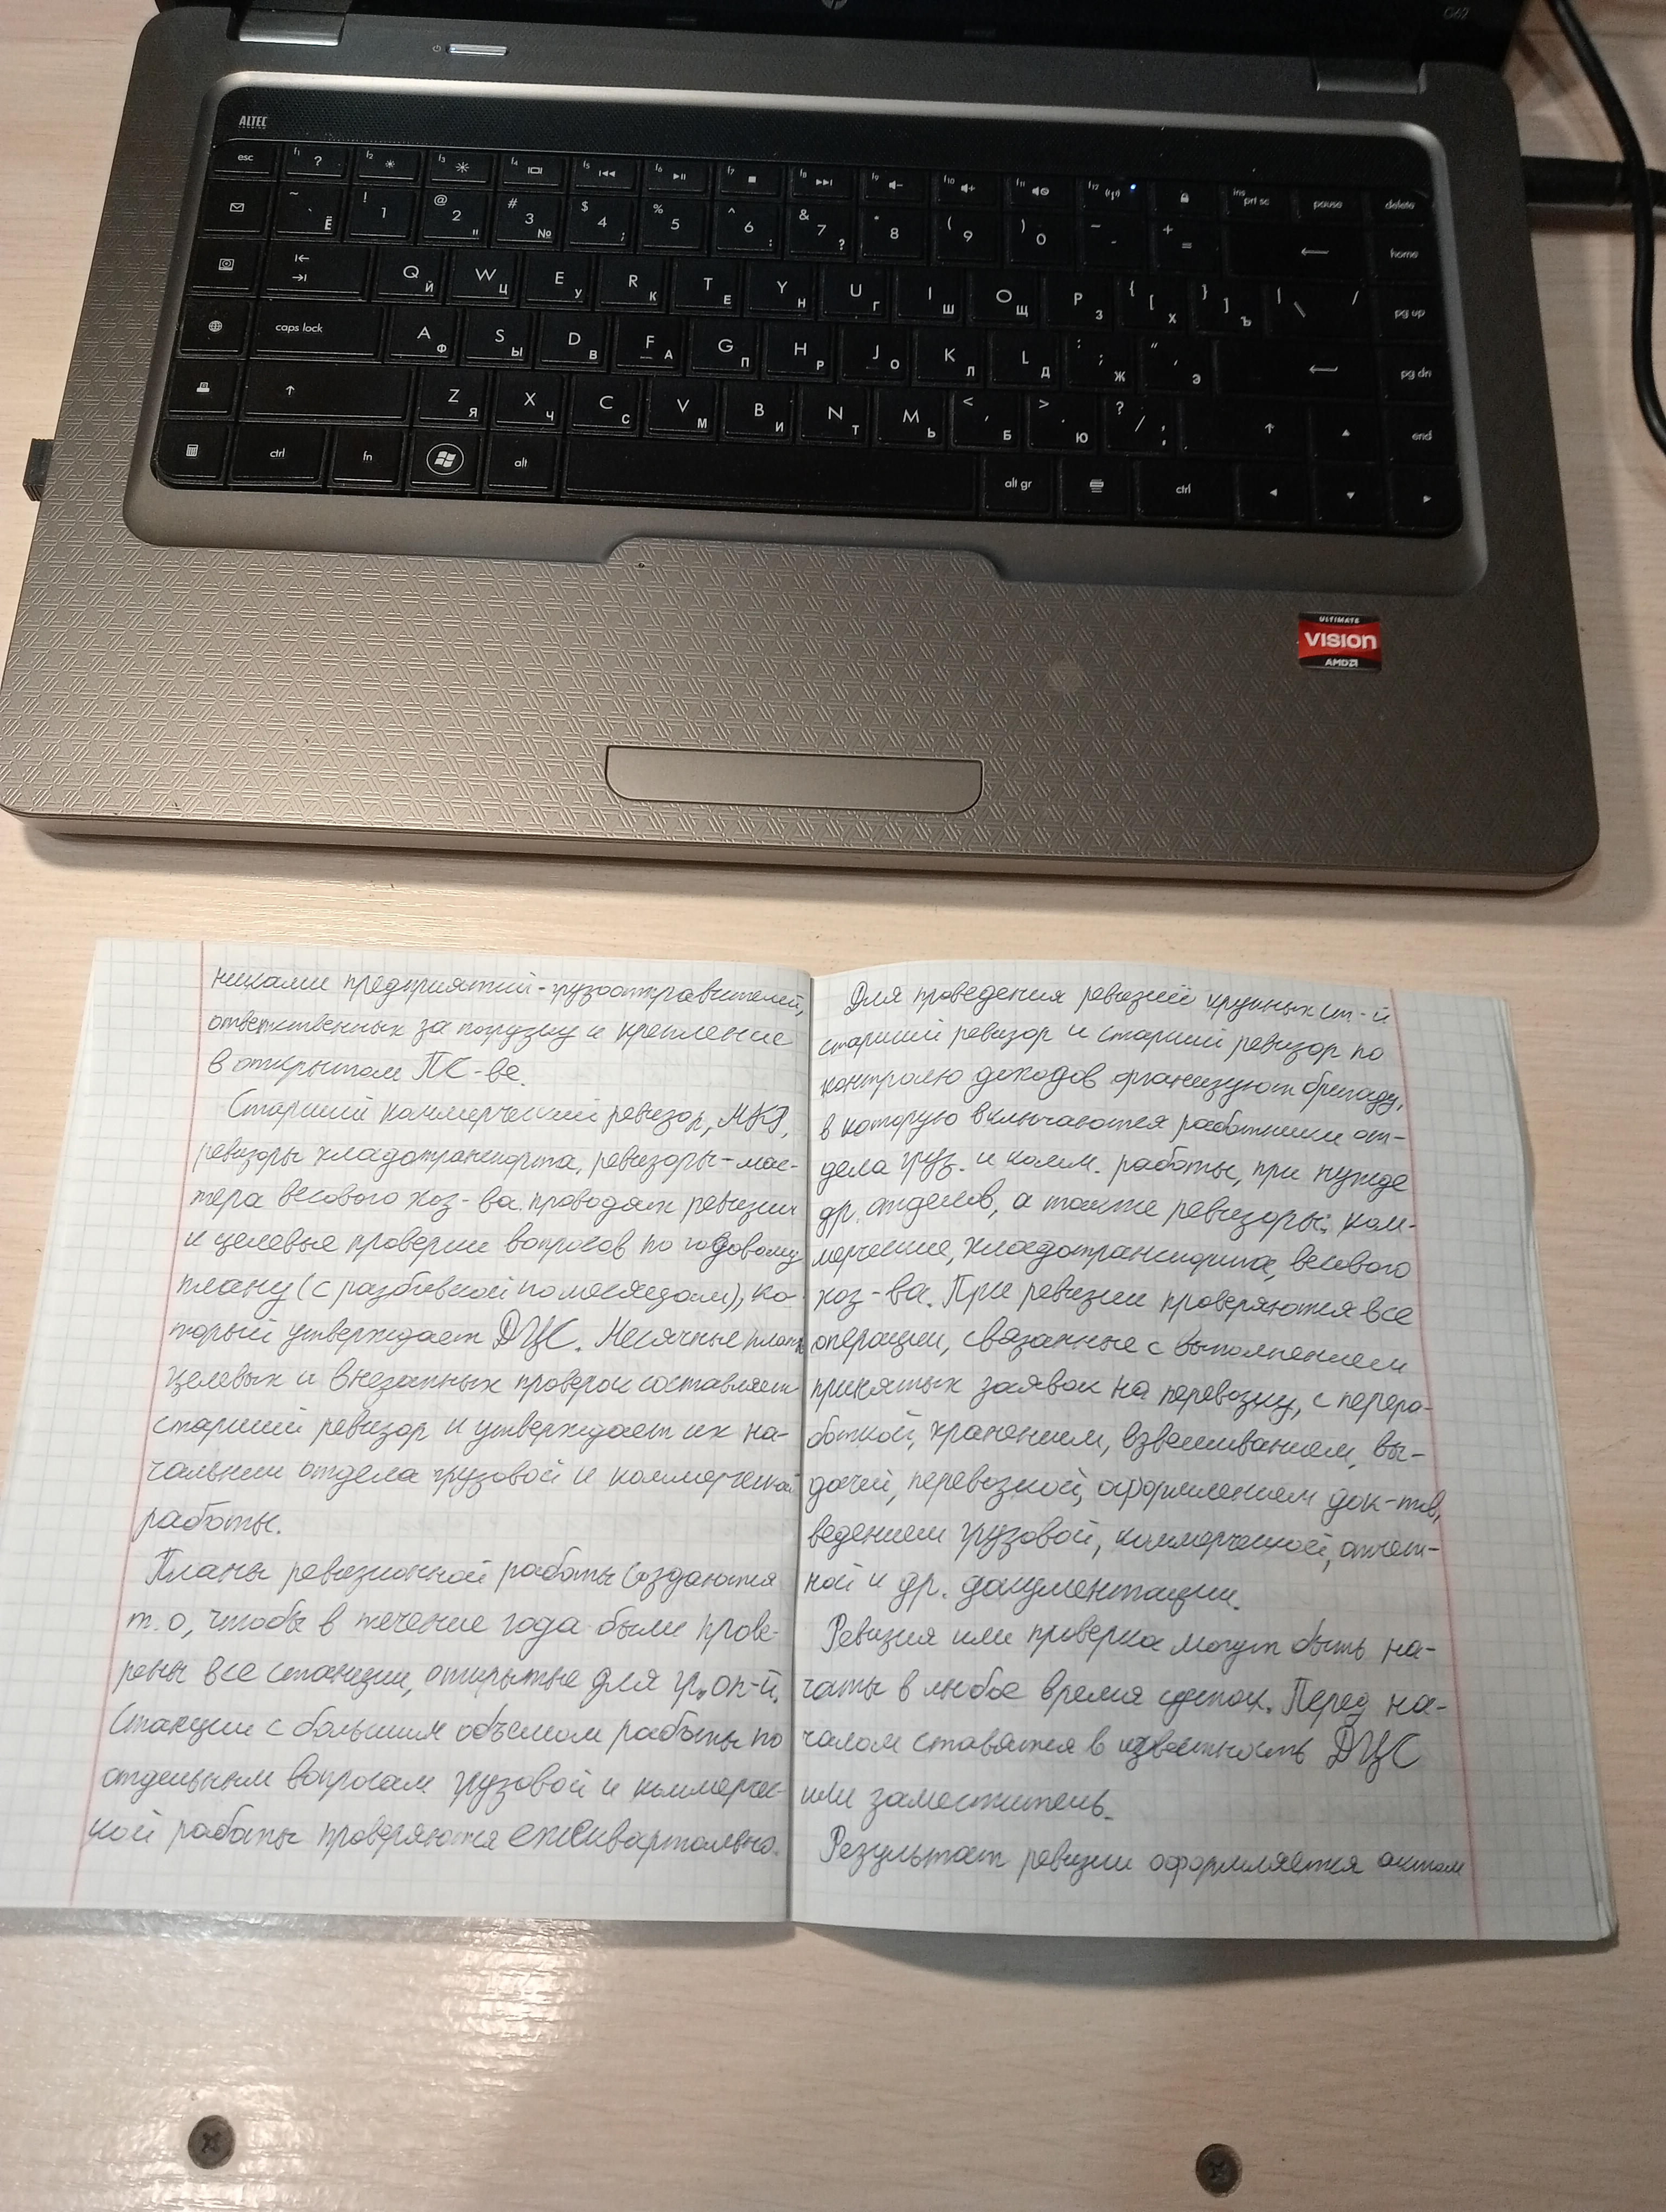 G62
ALTEC
esc f1 ? f2 f3 f4 f5 f6 f7 f8 f9 f10 f11 f12 ins prt sc pause delete
~ ` Ё ! 1 @ 2 " # 3 № $ 4 ; % 5 ^ 6 : & 7 ? * 8 ( 9 ) 0 _ - + = home
Q Й W Ц E У R К T Е Y Н U Г I Ш O Щ P З { [ Х } ] Ъ | \ / pg up
caps lock A Ф S Ы D В F А G П H Р J О K Л L Д : ; Ж " ' Э pg dn
Z Я X Ч C С V М B И N Т M Ь < , Б > . Ю ? / end
ctrl fn alt alt gr ctrl
ULTIMATE
VISION
AMD
никами предприятий-грузоотправителей,
ответственных за погрузку и крепление
в открытом ПС-ве.
Старший коммерческий ревизор, МКР,
ревизоры хладотранспорта, ревизоры-мас-
тера весового хоз-ва проводят ревизии
и целевые проверки вопросов по годовому
плану (с разбивкой по месяцам), ко-
торый утверждает ДЦС. Месячные планы
целевых и внезапных проверок составляет
старший ревизор и утверждает их на-
чальник отдела грузовой и коммерческой
работы.
Планы ревизионной работы создаются
т.о, чтобы в течение года были прове-
рены все станции, открытые для гр. оп-й.
Станции с большим объемом работы по
отдельным вопросам грузовой и коммерчес-
кой работы проверяются ежеквартально.
Для проведения ревизий крупных ст-й
старший ревизор и старший ревизор по
контролю доходов организуют бригаду,
в которую включаются работники от-
дела груз. и комм. работы, при нужде
др. отделов, а также ревизоры: ком-
мерческие, хладотранспорта, весового
хоз-ва. При ревизии проверяются все
операции, связанные с выполнением
принятых заявок на перевозку, с перера-
боткой, хранением, взвешиванием, вы-
дачей, перевозкой, оформлением док-тв,
ведением грузовой, коммерческой, отчет-
ной и др. документации.
Ревизия или проверка могут быть на-
чаты в любое время суток. Перед на-
чалом ставятся в известность ДЦС
или заместитель.
Результат ревизии оформляется актом